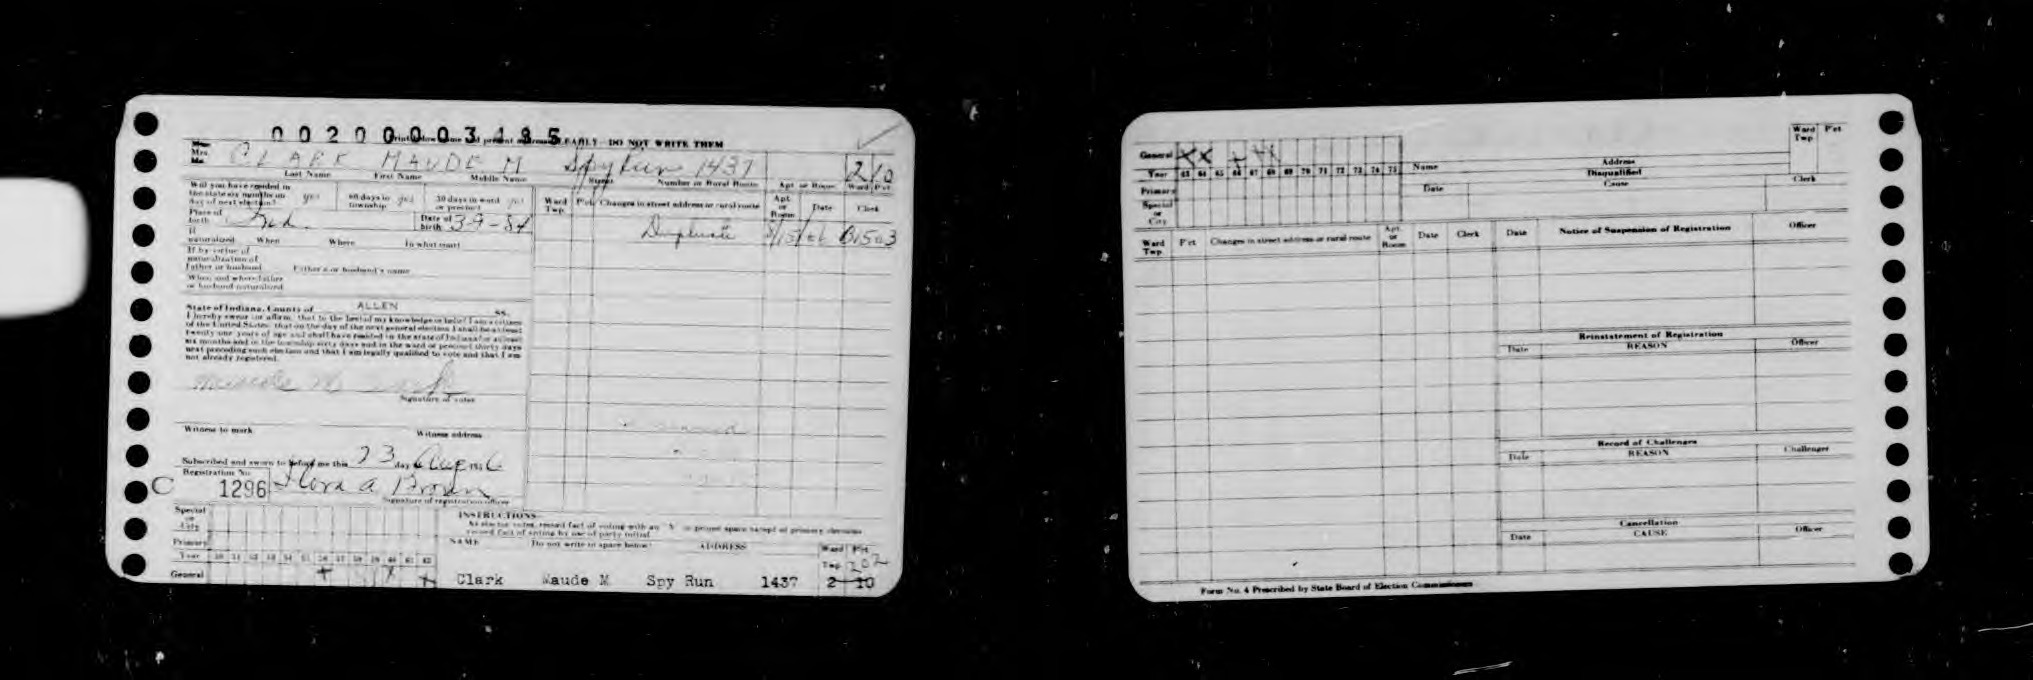 00200003485
CLEARLY - DO NOT WRITE THEM
Mrs. CLARK MAUDE M Spy Run 1437 2 10
Last Name First Name Middle Name Street Number or Rural Route Apt. or Room Ward Pct
Will you have resided in
the state six months on
day of next election? yes 60 days in township yes 30 days in ward or precinct yes
Ward Twp. Pct Changes in street address or rural route Apt. or Room Date Clerk
Place of birth Ind. Date of birth 3-9-84
Duplicate B1503
If naturalized When Where In what court
If by virtue of
naturalization of
Father or husband Father's or husband's name
When and where father
or husband naturalized
State of Indiana, County of ALLEN SS.
I hereby swear (or affirm) that to the best of my knowledge or belief I am a citizen
of the United States; that on the day of the next general election I shall be at least
twenty-one years of age and shall have resided in the state of Indiana for at least
six months and in the township sixty days and in the ward or precinct thirty days
next preceding such election and that I am legally qualified to vote and that I am
not already registered.
Maude M
Signature of voter
Witness to mark Witness address
Subscribed and sworn to before me this 23 day Aug
Registration No.
C 1296 Flora A Brown
Signature of registration officer
Special or City
Primary
Year 50 51 52 53 54 55 56 57 58 59 60 61 62
General
INSTRUCTIONS
At election voter, record fact of voting with an "X" in proper space except at primary elections
record fact of voting by use of party initial
NAME Do not write in space below ADDRESS Ward Twp. Pct
202
Clark Maude M Spy Run 1437 2-10
General X X
Year 63 64 65 66 67 68 69 70 71 72 73 74 75
Primary
Special or City
Name Address Ward Twp. Pct
Disqualified
Date Cause Clerk
Ward Twp. Pct Changes in street address or rural route Apt. or Room Date Clerk
Date Notice of Suspension of Registration Officer
Reinstatement of Registration
Date REASON Officer
Record of Challenges
Date REASON Challenger
Cancellation
Date CAUSE Officer
Form No. 4 Prescribed by State Board of Election Commissioners